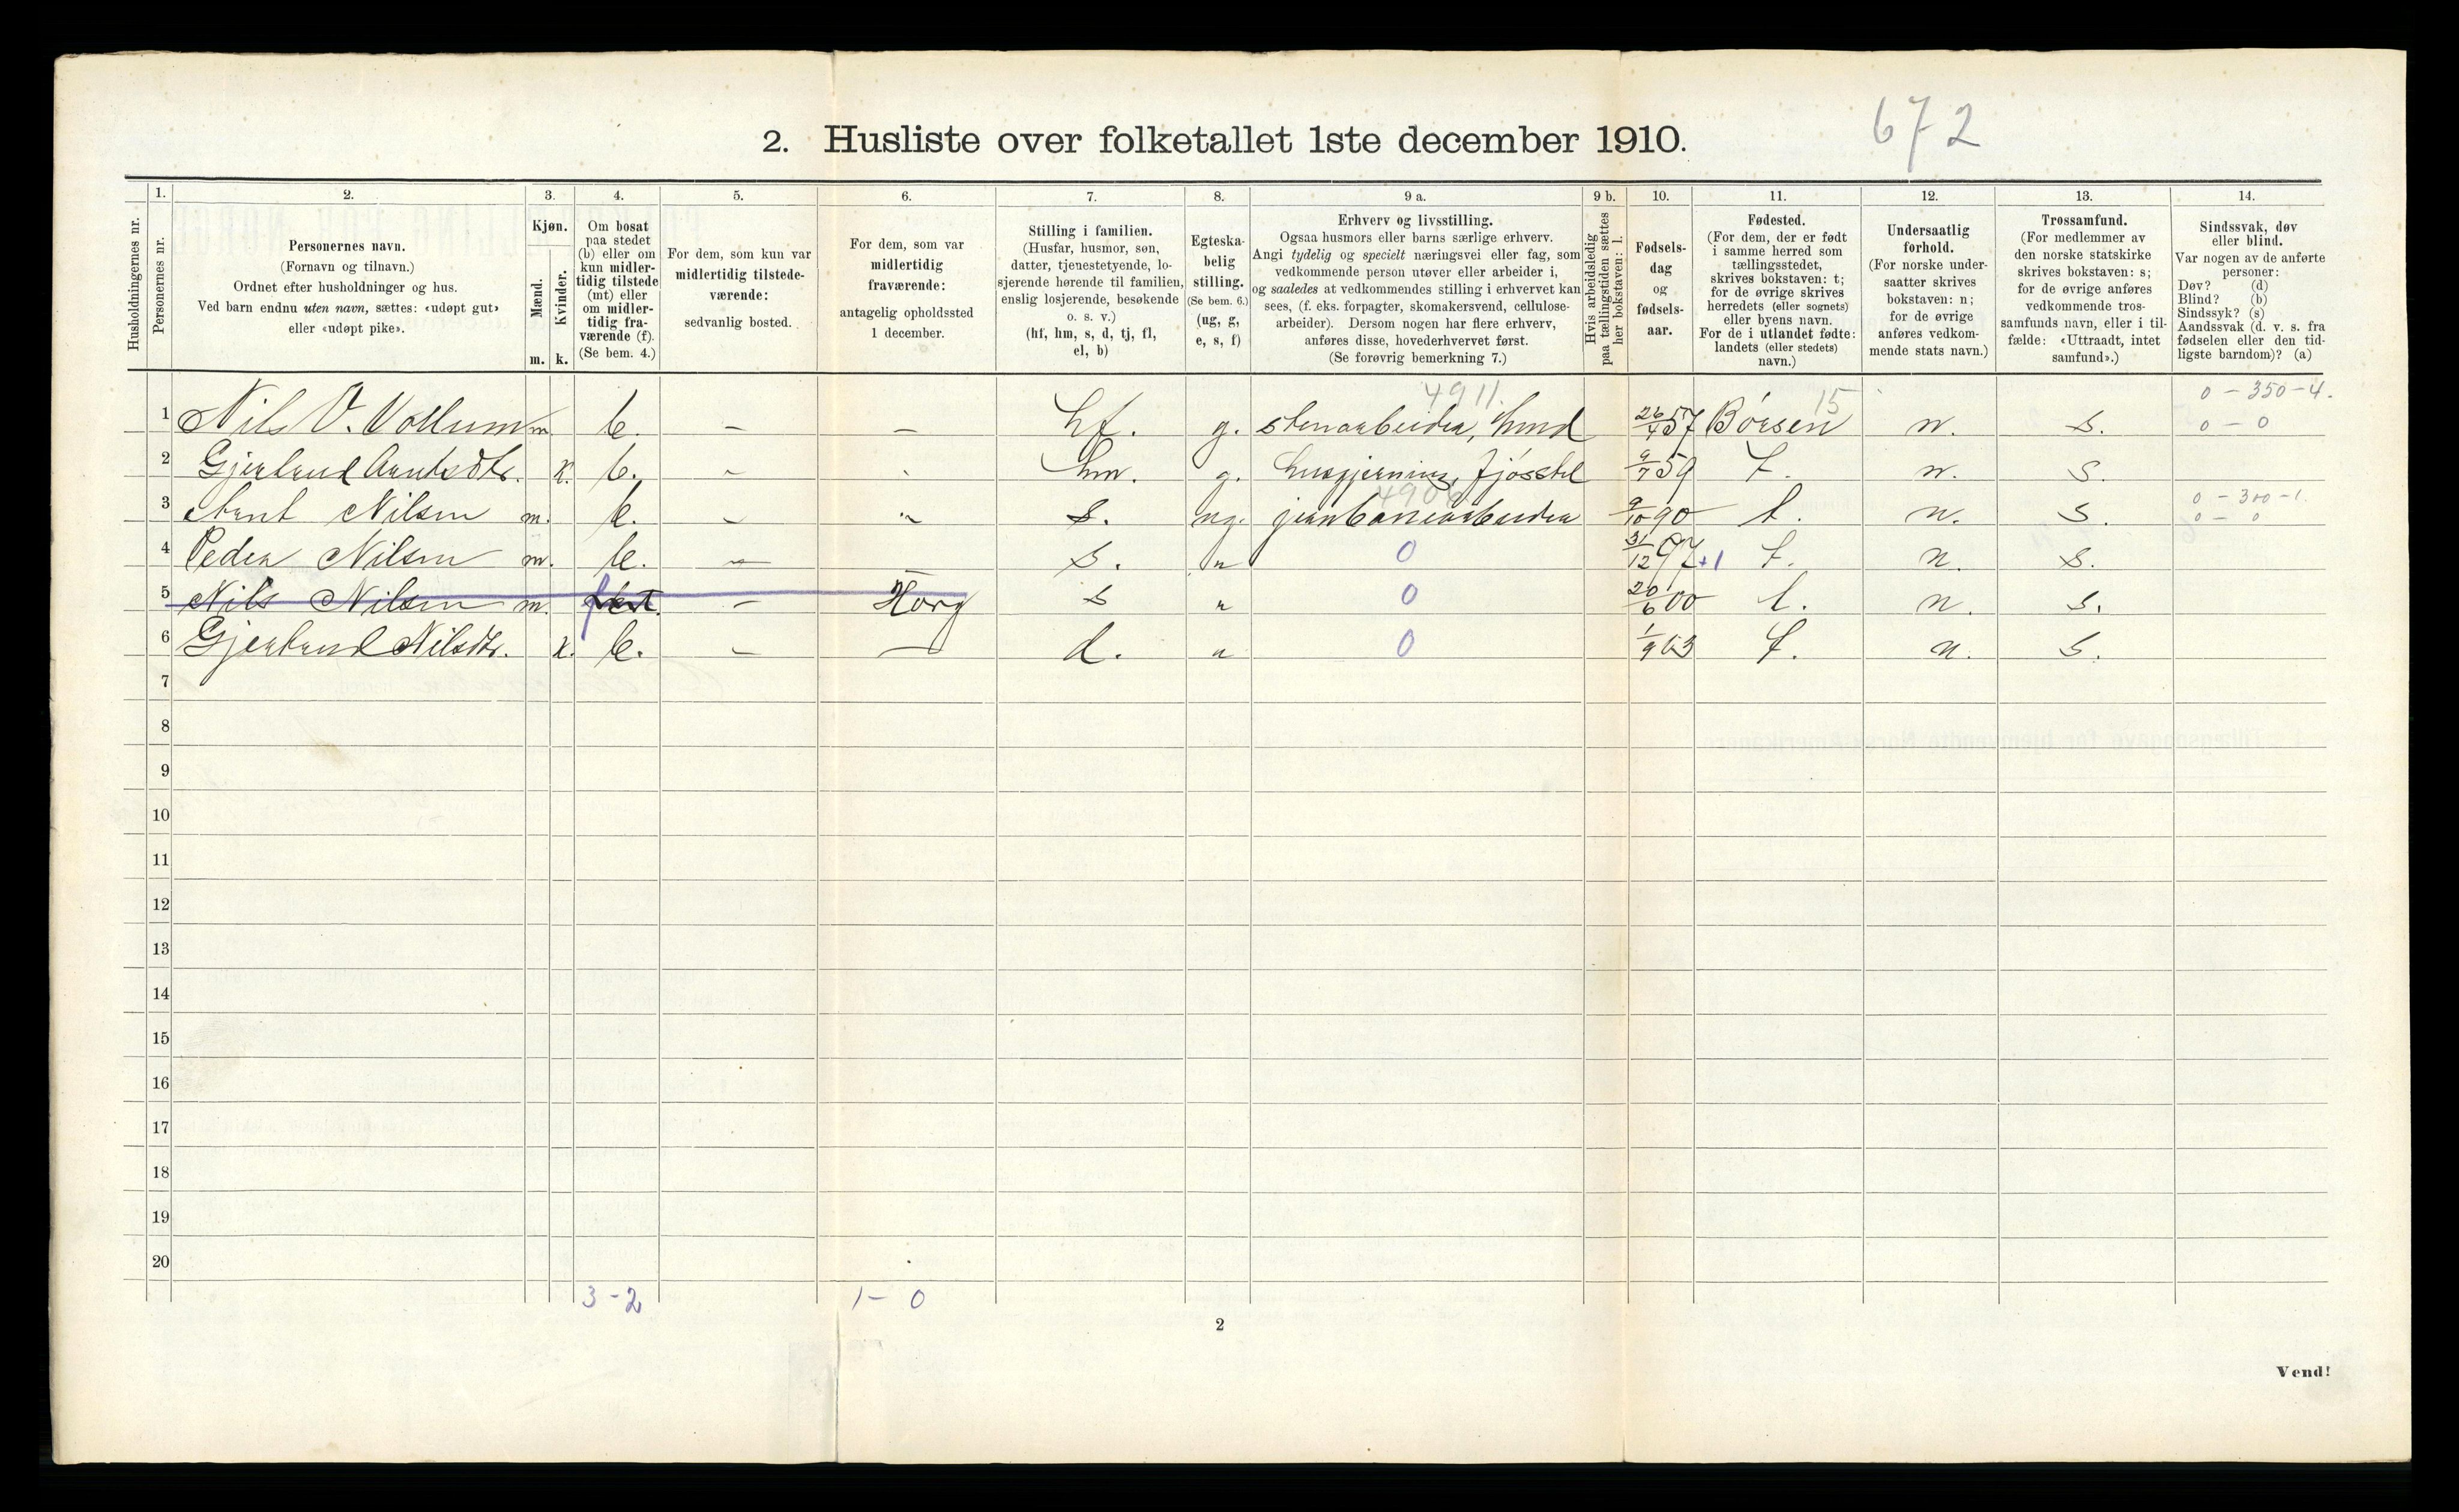 672
2. Husliste over folketallet 1ste december 1910.
Husholdningernes nr.
1.
Personernes nr.
2.
Personernes navn.
(Fornavn og tilnavn.)
Ordnet efter husholdninger og hus.
Ved barn endnu uten navn, sættes: «udøpt gut»
eller «udøpt pike».
3.
Kjøn.
Mænd.
m.
Kvinder.
k.
4.
Om bosat
paa stedet
(b) eller om
kun midler-
tidig tilstede
(mt) eller
om midler-
tidig fra-
værende (f).
(Se bem. 4.)
5.
For dem, som kun var
midlertidig tilstede-
værende:
sedvanlig bosted.
6.
For dem, som var
midlertidig
fraværende:
antagelig opholdssted
1 december.
7.
Stilling i familien.
(Husfar, husmor, søn,
datter, tjenestetyende, lo-
sjerende hørende til familien,
enslig losjerende, besøkende
o. s. v.)
(hf, hm, s, d, tj, fl,
el, b)
8.
Egteska-
belig
stilling.
(Se bem. 6.)
(ug, g,
e, s, f)
9 a.
Erhverv og livsstilling.
Ogsaa husmors eller barns særlige erhverv.
Angi tydelig og specielt næringsvei eller fag, som
vedkommende person utøver eller arbeider i,
og saaledes at vedkommendes stilling i erhvervet kan
sees, (f. eks. forpagter, skomakersvend, cellulose-
arbeider). Dersom nogen har flere erhverv,
anføres disse, hovederhvervet først.
(Se forøvrig bemerkning 7.)
9 b.
Hvis arbeidsledig
paa tællingstiden sættes
her bokstaven: l.
10.
Fødsels-
dag
og
fødsels-
aar.
11.
Fødested.
(For dem, der er født
i samme herred som
tællingsstedet,
skrives bokstaven: t;
for de øvrige skrives
herredets (eller sognets)
eller byens navn.
For de i utlandet fødte:
landets (eller stedets)
navn.)
12.
Undersaatlig
forhold.
(For norske under-
saatter skrives
bokstaven: n;
for de øvrige
anføres vedkom-
mende stats navn.)
13.
Trossamfund.
(For medlemmer av
den norske statskirke
skrives bokstaven: s;
for de øvrige anføres
vedkommende tros-
samfunds navn, eller i til-
fælde: «Uttraadt, intet
samfund».)
14.
Sindssvak, døv
eller blind.
Var nogen av de anførte
personer:
Døv? (d)
Blind? (b)
Sindssyk? (s)
Aandssvak (d. v. s. fra
fødselen eller den tid-
ligste barndom)? (a)
4911. 15 0 - 350 - 4.
1 Nils V. Vollum m. b. - - hf. g. stenarbeider, hmd 26/4 57 Børsen n. s. 0 - 0
2 Gjertrud Arntsdtr. k. b. - - hm. g. husgjerning, fjøsstel 9/7 59 t. n. s.
4906 0 - 300 - 1.
3 Arnt Nilsen m. b. - - s. ug. jernbanearbeider 9/10 90 t. n. s. 0 - 0
4 Peder Nilsen m. b. - - s. " 0 31/12 97 +1 t. n. s.
5 Nils Nilsen m. f - Horg s " 0 20/6 00 t. n. s.
6 Gjertrud Nilsdtr. k. b. - - d. " 0 1/9 03 t. n. s.
7
8
9
10
11
12
13
14
15
16
17
18
19
20
3 - 2 1 - 0
2
Vend!